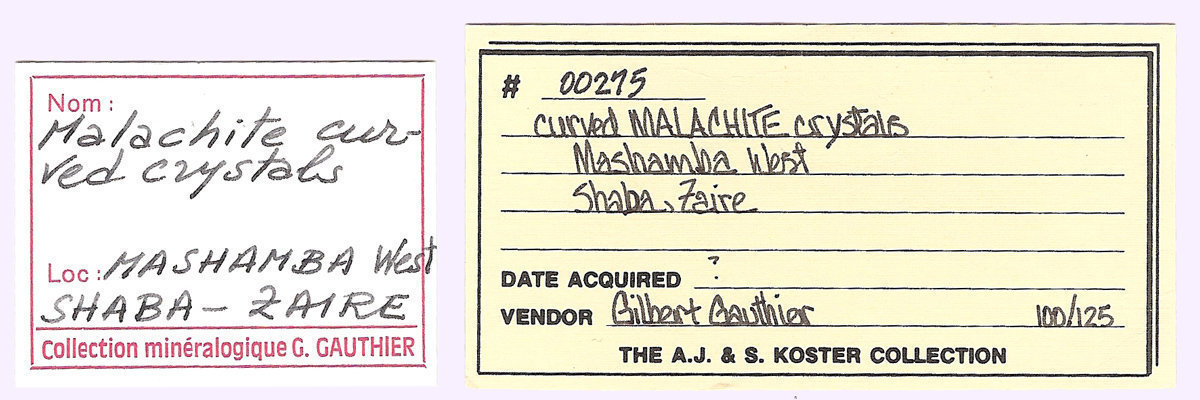 Nom:
Malachite cur-
ved crystals
Loc: MASHAMBA West
SHABA - ZAIRE
Collection minéralogique G. GAUTHIER
# 00275
curved MALACHITE crystals
Mashamba West
Shaba, Zaire
DATE ACQUIRED ?
VENDOR Gilbert Gauthier 100/125
THE A.J. & S. KOSTER COLLECTION